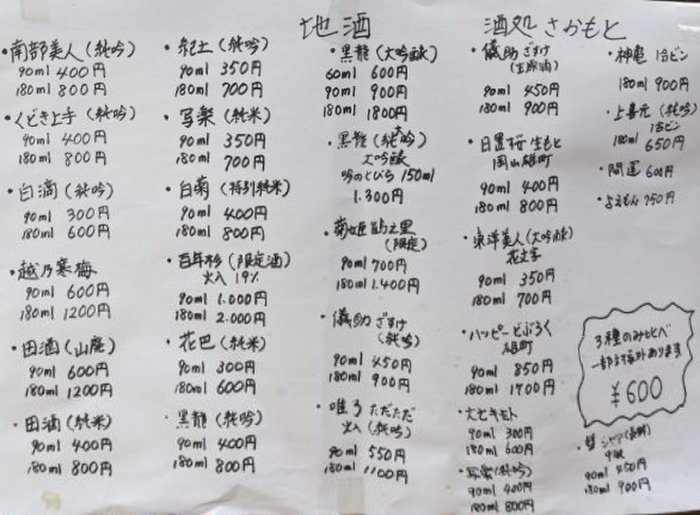 地酒
酒処 さかもと
・南部美人(純吟)
90ml 400円
180ml 800円
・くどき上手(純吟)
90ml 400円
180ml 800円
・白滴(純吟)
90ml 300円
180ml 600円
・越乃寒梅
90ml 600円
180ml 1200円
・田酒(山廃)
90ml 600円
180ml 1200円
・田酒(純米)
90ml 400円
180ml 800円
・紀土(純吟)
90ml 350円
180ml 700円
・写楽(純米)
90ml 350円
180ml 700円
・白菊(特別純米)
90ml 400円
180ml 800円
・百年杉(限定酒)
火入 19%
90ml 1.000円
180ml 2.000円
・花巴(純米)
90ml 300円
180ml 600円
・黒龍(純吟)
90ml 400円
180ml 800円
・黒龍(大吟醸)
60ml 600円
90ml 900円
180ml 1800円
・黒龍(純吟)
大吟醸
吟のとびら 150ml
1.300円
・菊姫 鶴乃里
(限定)
90ml 700円
180ml 1.400円
・儀助 ざすけ
(純吟)
90ml 450円
180ml 900円
・唯々 ただただ
火入(純吟)
90ml 550円
180ml 1100円
・儀助 ざすけ
(生原酒)
90ml 450円
180ml 900円
・日置桜 生もと
岡山雄町
90ml 400円
180ml 800円
・東洋美人(大吟醸)
花文字
90ml 350円
180ml 700円
・ハッピーどぶろく
雄町
90ml 850円
180ml 1700円
・大七キモト
90ml 300円
180ml 600円
・写楽(純吟)
90ml 400円
180ml 800円
・神亀 1合ビン
180ml 900円
・上喜元(純吟)
1合ビン
180ml 650円
・開運 600円
・よえもん 750円
3種のみ比べ
一部対象外あります
¥600
90ml 450円
180ml 900円